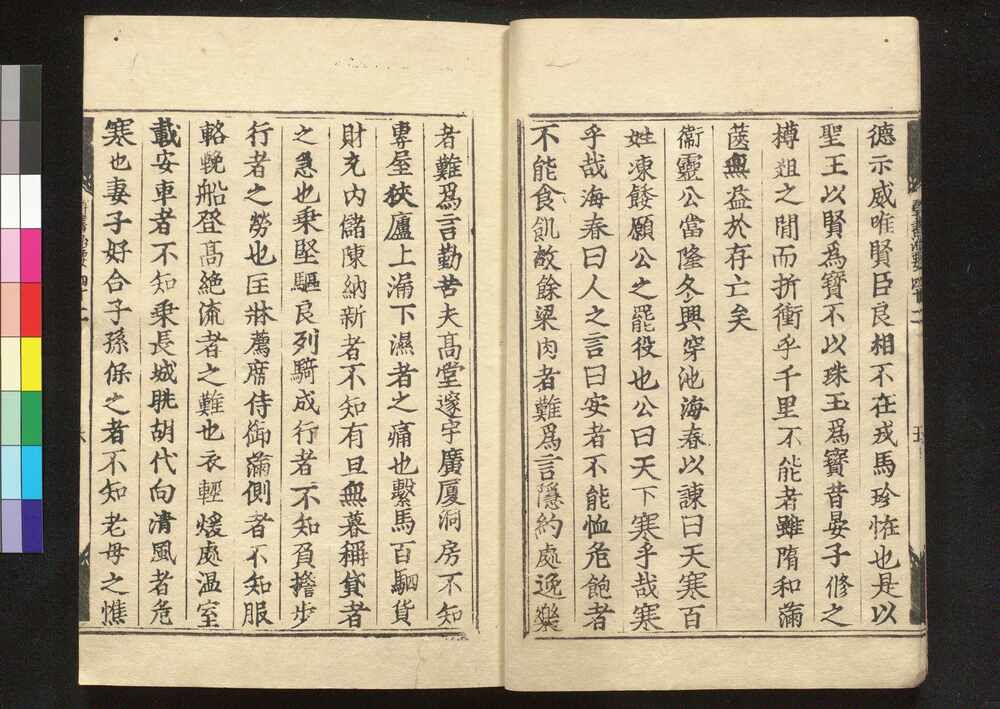 德示威唯賢臣良相不在戎馬珍恠也是以
聖王以賢爲寶不以珠玉爲寶昔晏子修之
樽俎之間而折衝乎千里不能者雖隋和滿
篋無益於存亡矣
衞靈公當隆冬興穿池海春以諫曰天寒百
姓凍餧願公之罷役也公曰天下寒乎哉寒
乎哉海春曰人之言曰安者不能恤危飽者
不能食飢故餘梁肉者難爲言隱約處逸樂
者難爲言勤苦夫髙堂邃宇廣厦洞房不知
專屋狹廬上漏下濕者之痛也繫馬百駟貨
財充内儲陳納新者不知有旦無暮稱貸者
之急也乘堅驅良列騎成行者不知負擔步
行者之勞也匡牀薦席侍御滿側者不知服
輅輓船登髙絶流者之難也衣輕煖處温室
載安車者不知乘長城眺胡代向清風者危
寒也妻子好合子孫保之者不知老母之憔